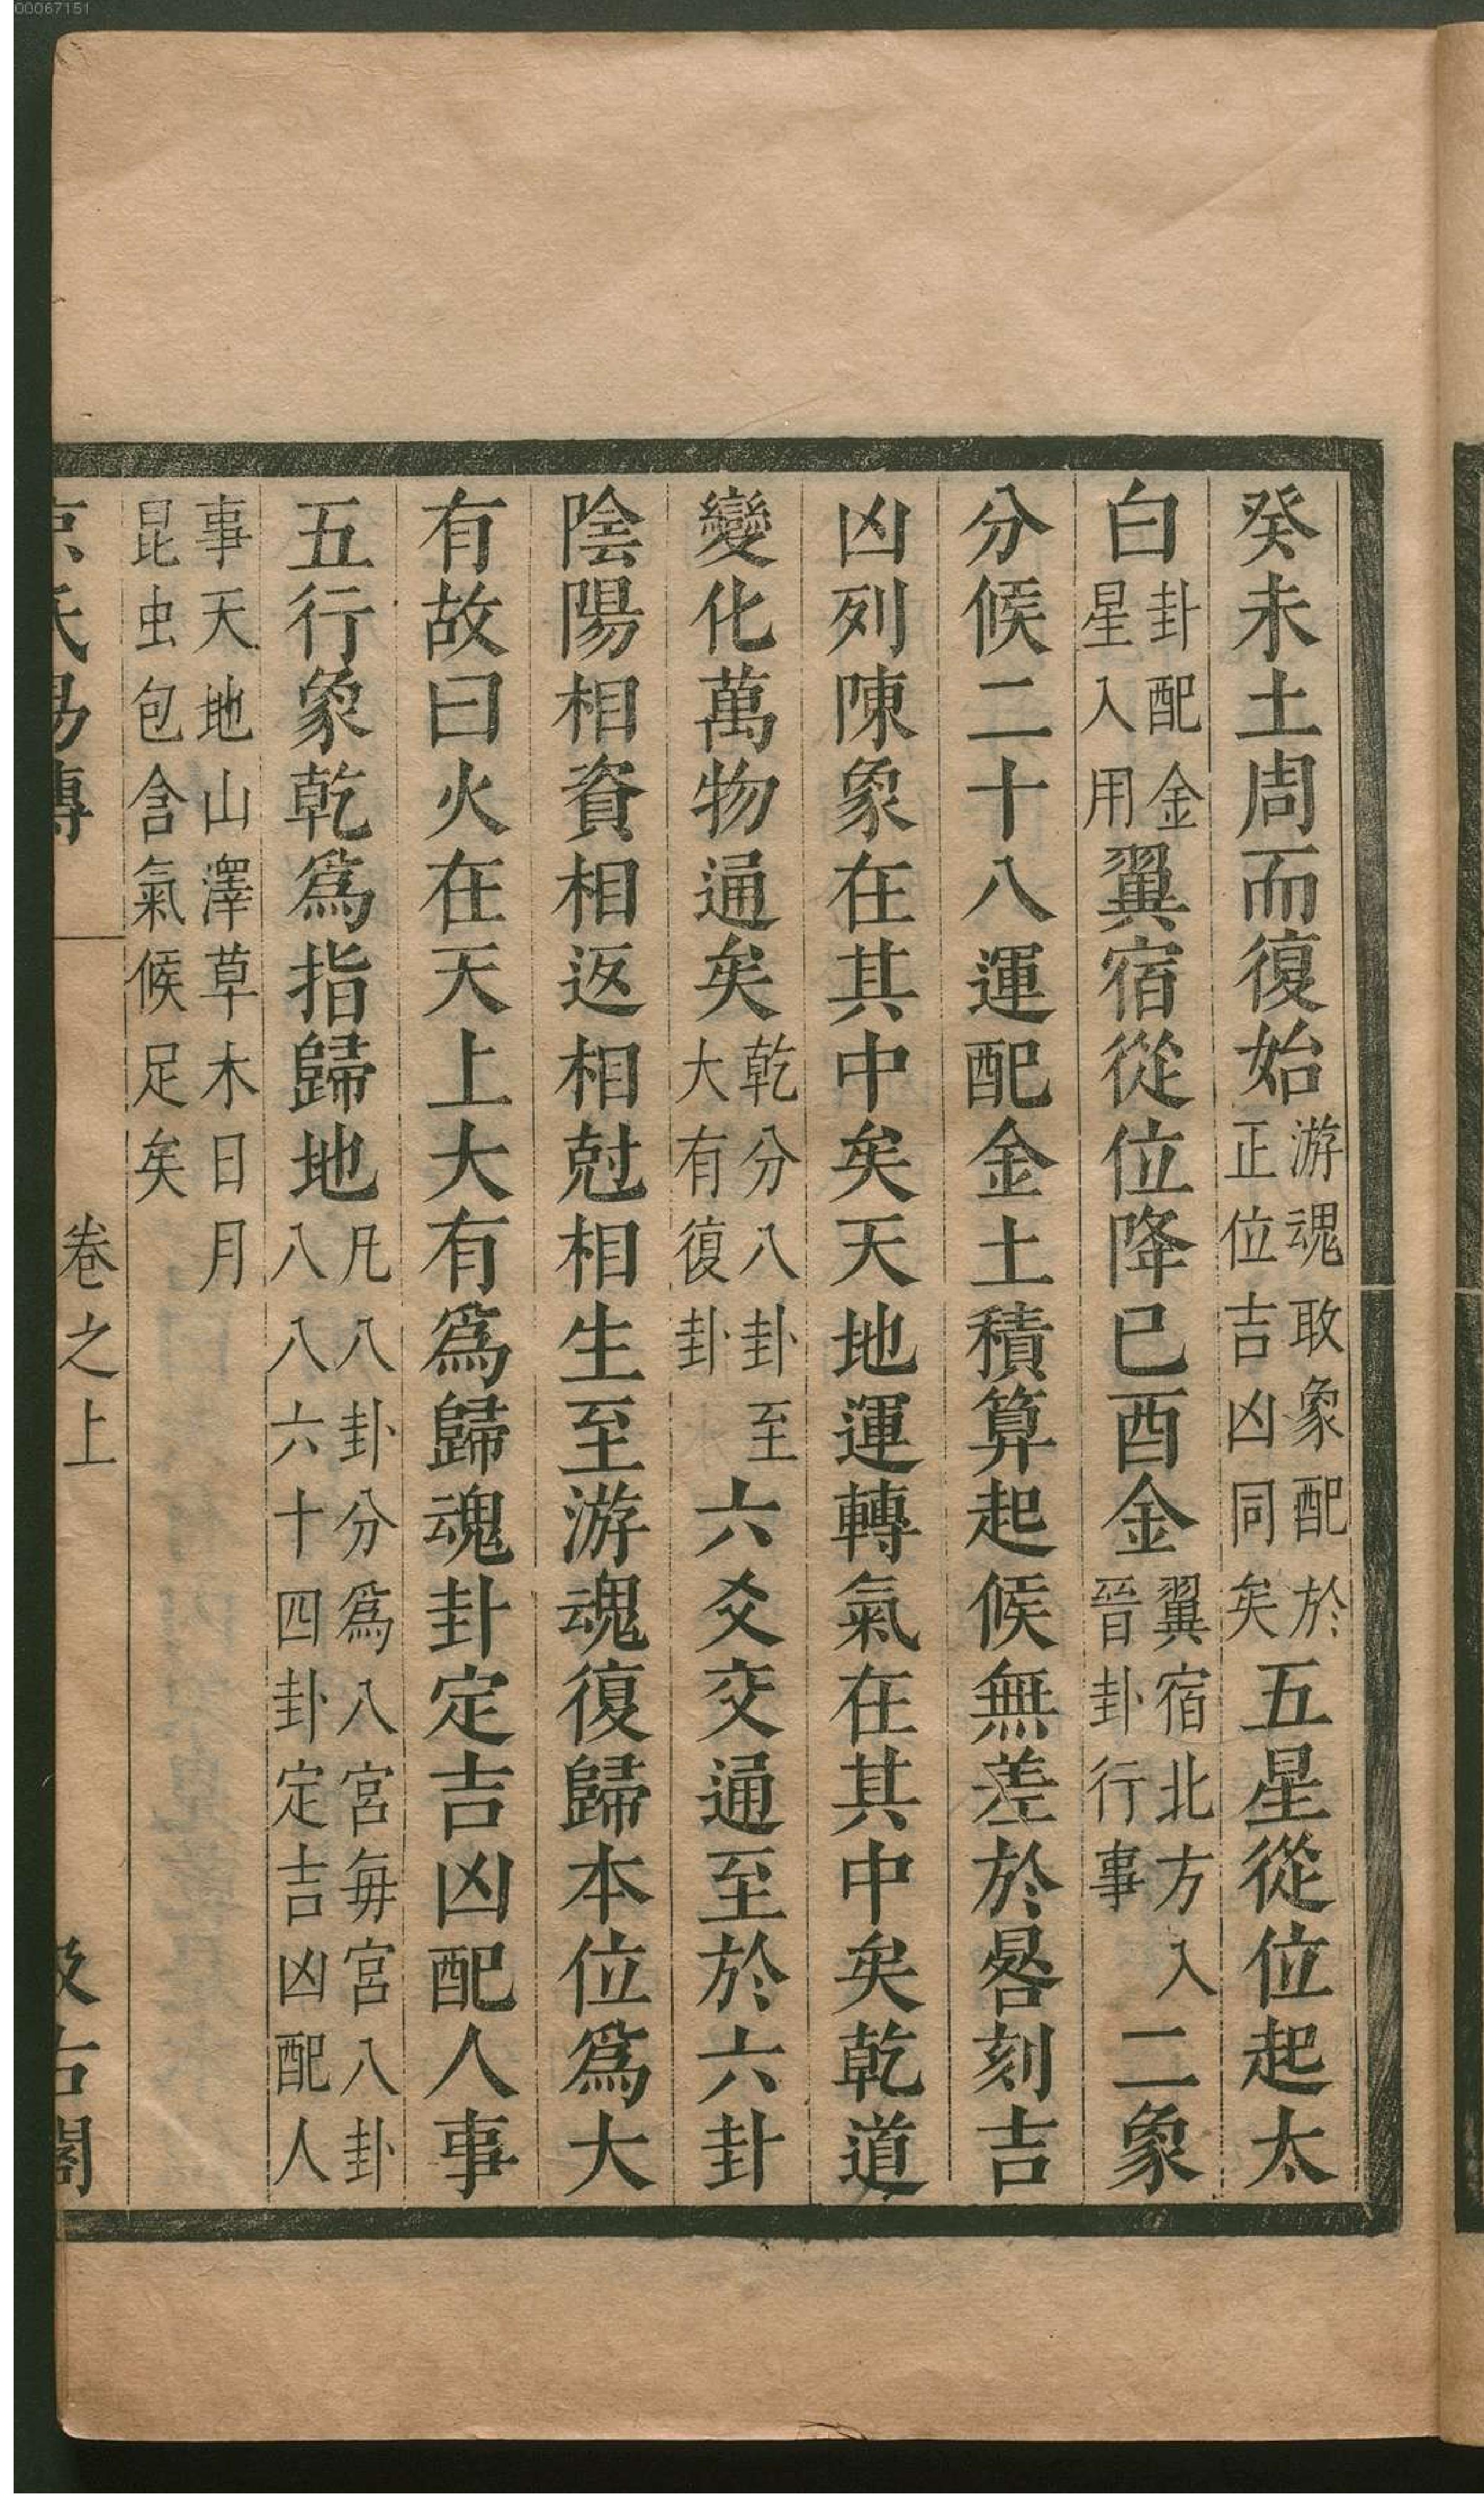 00067151
癸未土周而復始游魂敢象配於正位吉凶同矣五星從位起太
白卦配金星入用翼宿從位降已酉金翼宿北方入晉卦行事二象
分候二十八運配金土積算起候無差於晷刻吉
凶列陳象在其中矣天地運轉氣在其中矣乾道
變化萬物通矣乾分八卦至大有復卦六爻交通至於六卦
陰陽相資相返相尅相生至游魂復歸本位爲大
有故曰火在天上大有爲歸魂卦定吉凶配人事
五行象乾爲指歸地凡八卦分爲八宮每宮八卦八八六十四卦定吉凶配人
事天地山澤草木日月昆虫包含氣候足矣
京氏易傳 卷之上 汲古閣